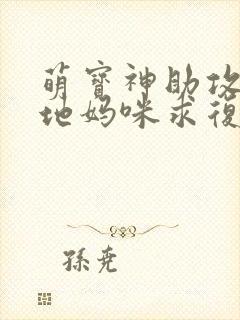 萌寶神助攻
地媽咪求復
孫堯